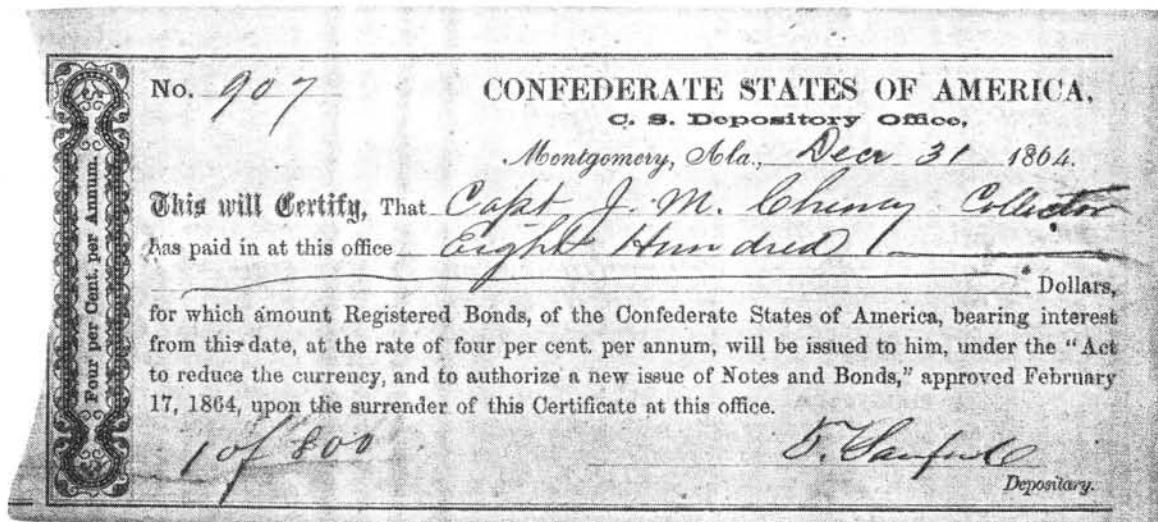 No. 907
CONFEDERATE STATES OF AMERICA,
C. S. Depository Office,
Montgomery, Ala., Decr 31 1864.
Four per Cent. per Annum.
This will Certify, That Capt J. M. Cheney Collector
has paid in at this office Eight Hundred
Dollars,
for which amount Registered Bonds, of the Confederate States of America, bearing interest
from this date, at the rate of four per cent. per annum, will be issued to him, under the "Act
to reduce the currency, and to authorize a new issue of Notes and Bonds," approved February
17, 1864, upon the surrender of this Certificate at this office.
1 of 800
Depositary.